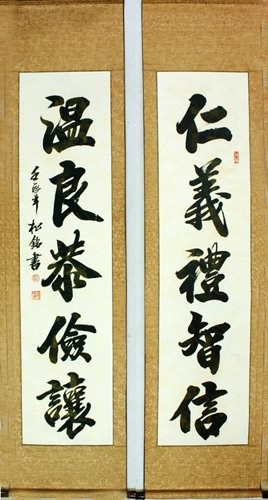 仁義禮智信
溫良恭儉讓
松銘書